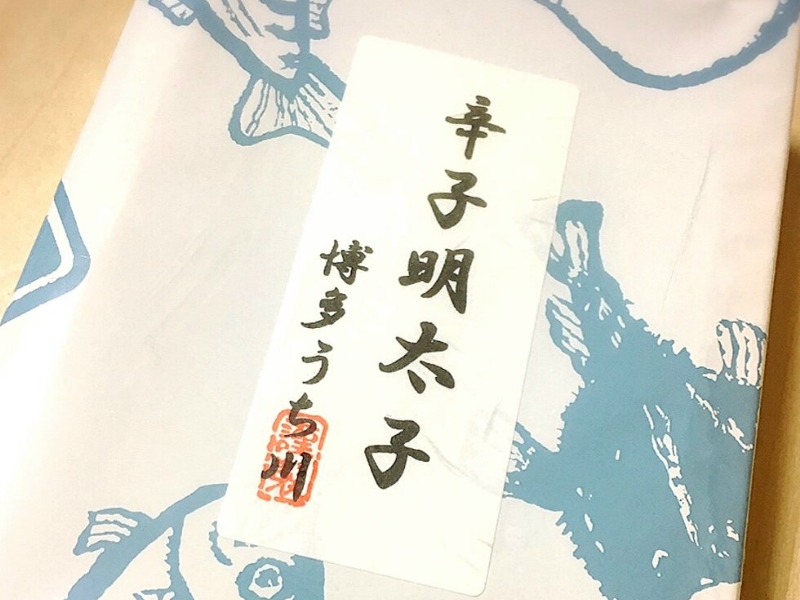 辛子明太子
博多うち川